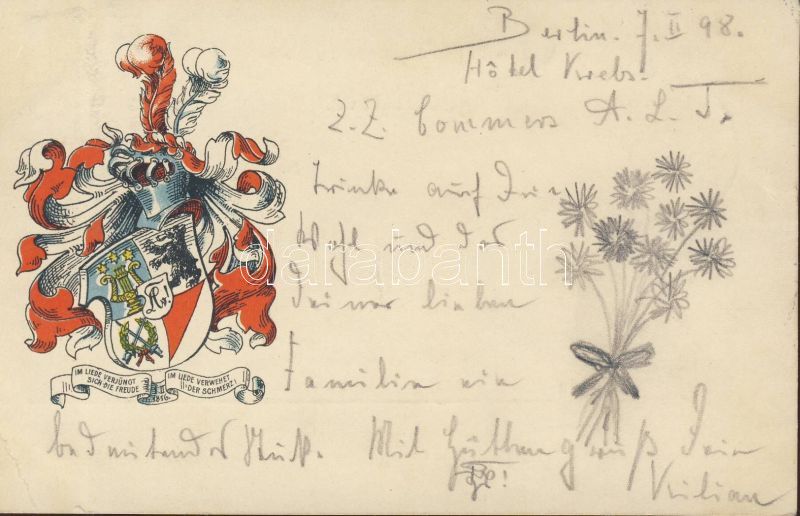 Berlin. 7. II 98.
Hôtel Krebs.
z. Z. Commers A. L. T.
trinke auf Dein
Wohl und das
Deiner lieben
Familie ein
bedeutendes Stück. Mit Gruß Dein
Kilian
IM LIEDE VERJÜNGT
SICH DIE FREUDE
IM LIEDE VERWEHET
DER SCHMERZ!
1816.
darabanth